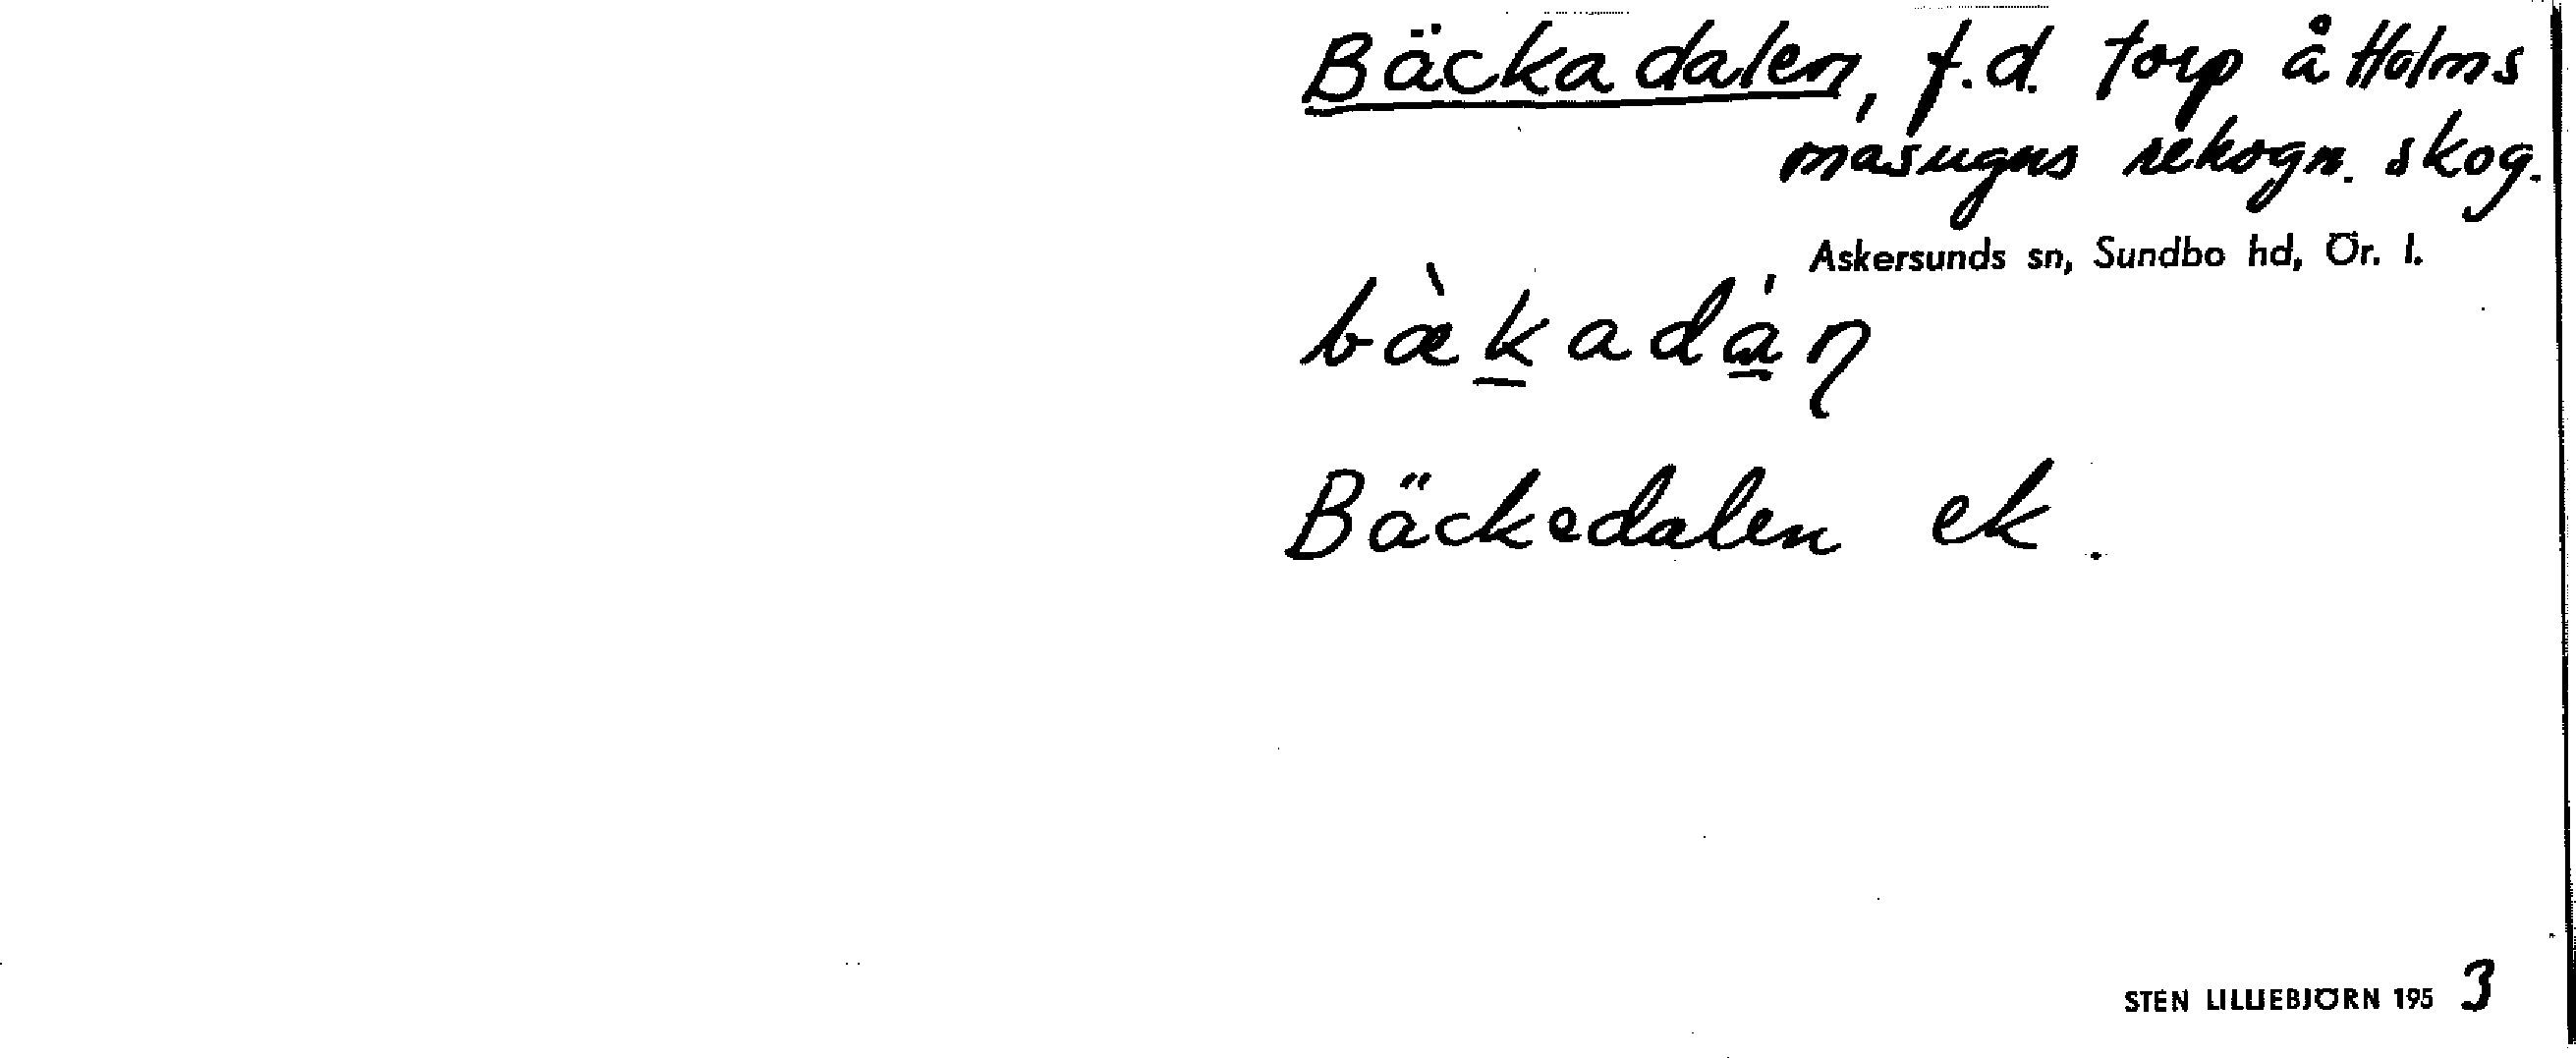 Bäckadalen, f.d. torp å Holms
masugns rekogn. skog.
Askersunds sn, Sundbo hd, Ör. l.
bæ̀k̲adɑ̲́ŋ
Bäckedalen ek.
STEN LILLIEBJÖRN 1953